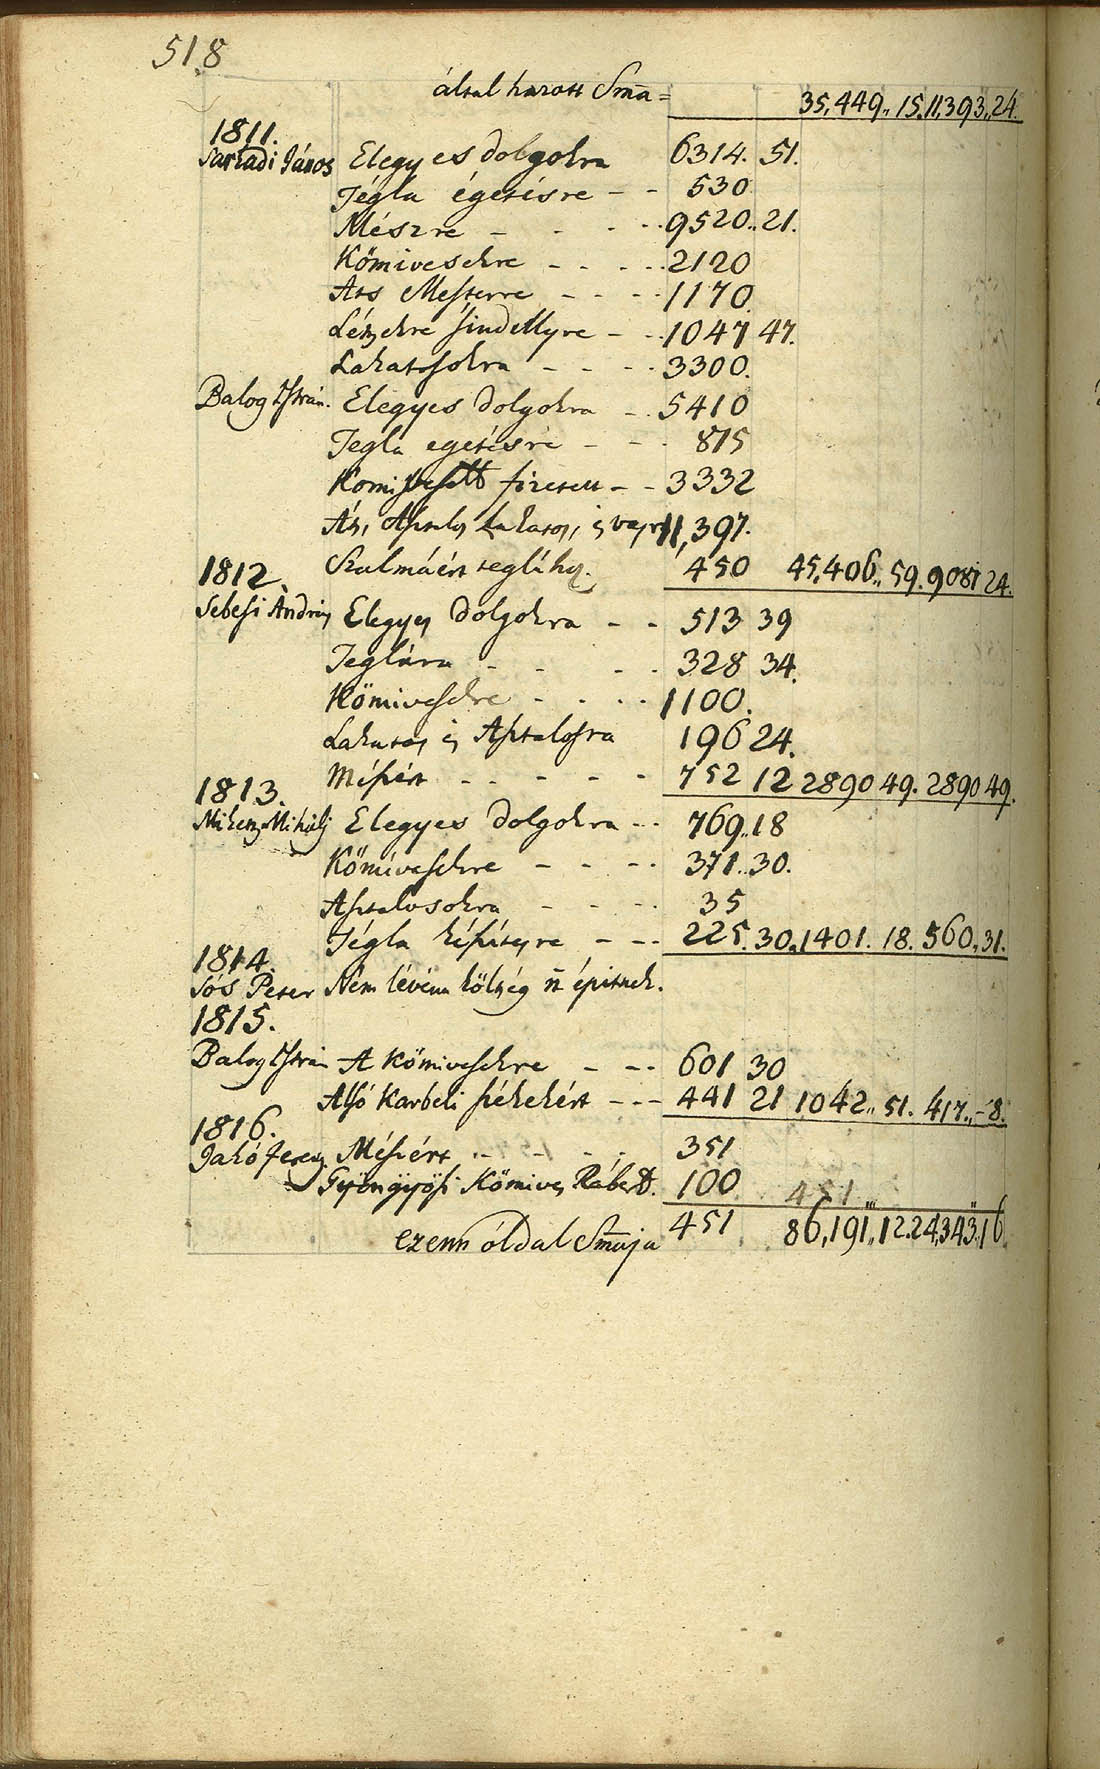 518
által hozott Sma = 35,449,, 15. 11,393,, 24.
1811.
Sarkadi János Elegyes dolgokra 6314. 51.
Tégla égetésre - - 530
Mészre - - - - 9520,, 21.
Kőmivesekre - - - - 2120
Ats Mesterre - - - - 1170
Létzekre sindellyre - - 1047 47.
Lakatosokra - - - - 3300.
Balog István. Elegyes dolgokra - - 5410
Tegla egetésre - - - 815
fizetett - - 3332
Áts, Asztalos, Lakatos, és 11,397.
Szalmáért 450 45,406,, 59. 9081 24.
1812.
Sebesi András Elegyes dolgokra - - 513 39
Teglára - - - - 328 34.
Kőmivesekre - - - - 1100.
Lakatos és Asztalosra 196 24.
Mészért - - - - - 752 12 2890 49. 2890 49.
1813.
Mihály Elegyes dolgokra - - 769,, 18
Kőmivesekre - - - - 371,, 30.
Asztalosokra - - - - 35
Tégla - - - 225. 30. 1401. 18. 560,, 31.
1814.
Sós Peter Nem lévén költség n építnek.
1815.
Balog István A Kőmivesekre - - - 601 30
Alsó Karbeli székekért - - - 441 21 1042,, 51. 417,, - 8.
1816.
Jakó Ferencz Mészért - - - - 351
Gyöngyösi Kőmives 100 451
ezenn óldal Smája 451 86,191,, 12. 24,343,, 16